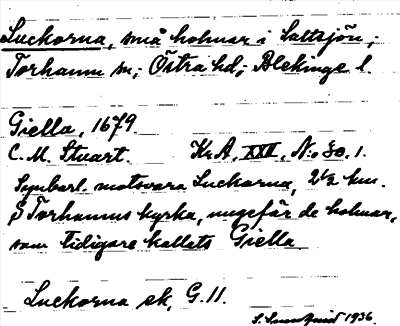 Luckorna, små holmar i Saltsjön;
Torhamn sn; Östra hd; Blekinge l.
Giella, 1679.
C. M. Stuart. Kr.A, XXII, N:o 30, 1.
Synbarl. motsvara Luckorna, 2½ km.
S Torhamns kyrka, ungefär de holmar,
som tidigare kallats Giella
Luckorna sk, G. 11.
S. Sundquid 1936.